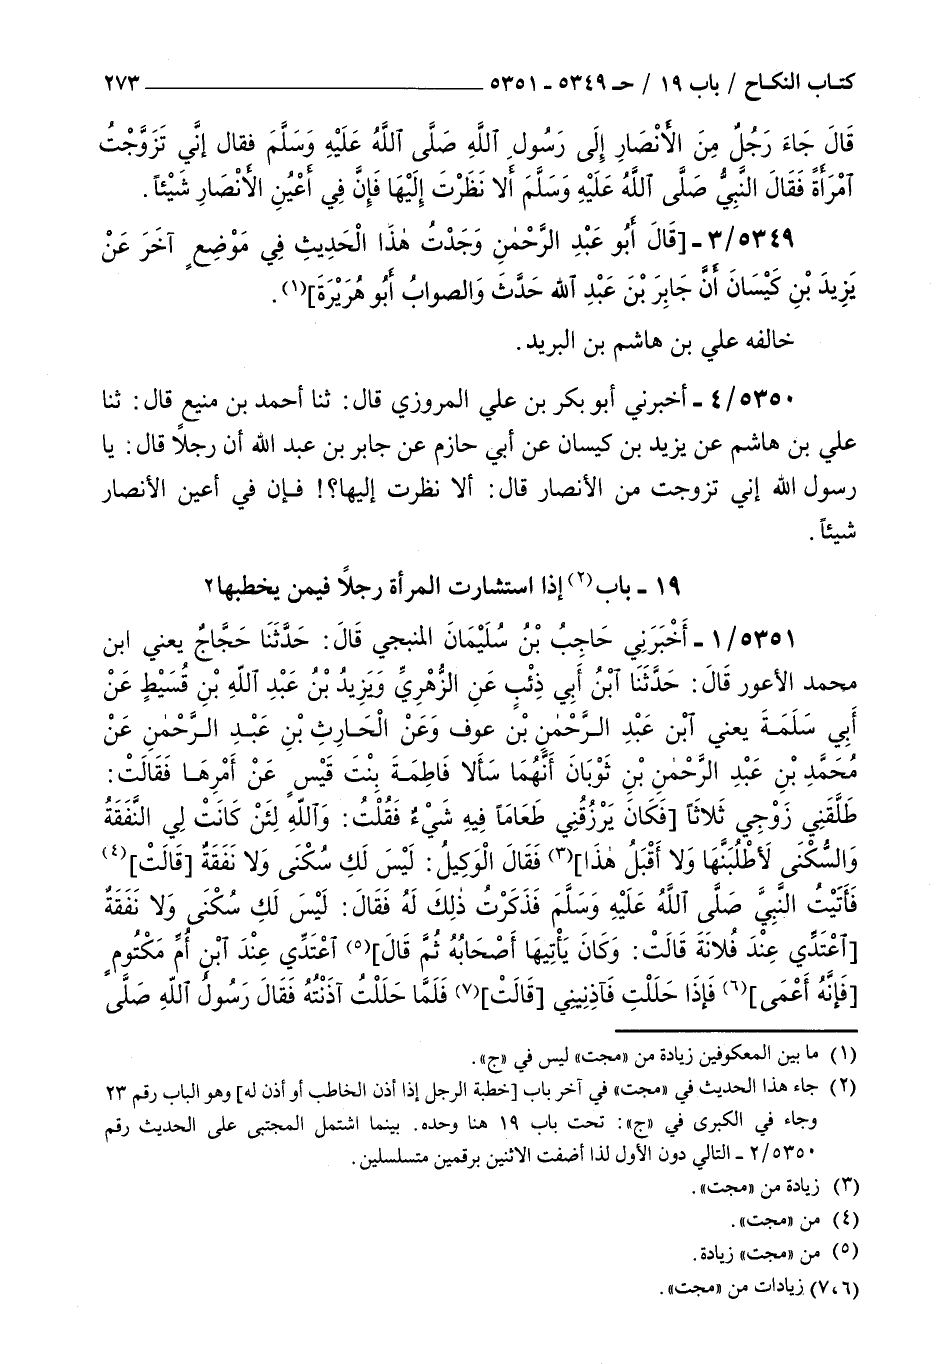 كتاب النكاح / باب ١٩ / حـ ٥٣٤٩ ـ ٥٣٥١ ٢٧٣
قَالَ جَاءَ رَجُلٌ مِنَ الأَنْصَارِ إِلَى رَسُولِ اللَّهِ صَلَّى اللَّهُ عَلَيْهِ وَسَلَّمَ فقال إنِّي تَزَوَّجْتُ
امْرَأَةً فَقَالَ النَّبِيُّ صَلَّى اللَّهُ عَلَيْهِ وَسَلَّمَ أَلا نَظَرْتَ إِلَيْهَا فَإِنَّ فِي أَعْيُنِ الأَنْصَارِ شَيْئاً.
٣/٥٣٤٩ ـ [قَالَ أَبُو عَبْدِ الرَّحْمٰنِ وَجَدْتُ هٰذَا الْحَدِيثِ فِي مَوْضِعٍ آخَرَ عَنْ
يَزِيدَ بْنِ كَيْسَانَ أَنَّ جَابِرَ بْنَ عَبْدِ الله حَدَّثَ وَالصوابُ أَبُو هُرَيْرَةَ](١).
خالفه علي بن هاشم بن البريد.
٤/٥٣٥٠ ـ أخبرني أبو بكر بن علي المروزي قال: ثنا أحمد بن منيع قال: ثنا
علي بن هاشم عن يزيد بن كيسان عن أبي حازم عن جابر بن عبد الله أن رجلاً قال: يا
رسول الله إني تزوجت من الأنصار قال: ألا نظرت إليها؟! فإن في أعين الأنصار
شيئاً.
١٩ ـ باب(٢) إذا استشارت المرأة رجلاً فيمن يخطبها؟
١/٥٣٥١ ـ أَخْبَرَنِي حَاجِبُ بْنُ سُلَيْمَانَ المنبجي قَالَ: حَدَّثَنَا حَجَّاجُ يعني ابن
محمد الأعور قَالَ: حَدَّثَنَا ابْنُ أَبِي ذِئْبٍ عَنِ الزُّهْرِيِّ وَيَزِيدُ بْنُ عَبْدِ اللَّهِ بْنِ قُسَيْطٍ عَنْ
أَبِي سَلَمَةَ يعني ابْنِ عَبْدِ الرَّحْمٰنِ بْنِ عوف وَعَنْ الْحَارِثِ بْنِ عَبْدِ الرَّحْمٰنِ عَنْ
مُحَمَّدِ بْنِ عَبْدِ الرَّحْمٰنِ بْنِ ثَوْبَانَ أَنَّهُمَا سَأَلا فَاطِمَةَ بِنْتَ قَيْسٍ عَنْ أَمْرِهَا فَقَالَتْ:
طَلَّقَنِي زَوْجِي ثَلاثَاً [فَكَانَ يَرْزُقُنِي طَعَامَاً فِيهِ شَيْءٌ فَقُلْتُ: وَاللَّهِ لَئِنْ كَانَتْ لِي النَّفَقَةُ
وَالسُّكْنَى لَأَطْلُبَنَّهَا وَلا أَقْبَلُ هٰذَا](٣) فَقَالَ الْوَكِيلُ: لَيْسَ لَكِ سُكْنَى وَلا نَفَقَةٌ [قَالَتْ](٤)
فَأَتَيْتُ النَّبِيَّ صَلَّى اللَّهُ عَلَيْهِ وَسَلَّمَ فَذَكَرْتُ ذٰلِكَ لَهُ فَقَالَ: لَيْسَ لَكِ سُكْنَى وَلا نَفَقَةٌ
[اعْتَدِّي عِنْدَ فُلانَةَ قَالَتْ: وَكَانَ يَأْتِيهَا أَصْحَابُهُ ثُمَّ قَالَ](٥) اعْتَدِّي عِنْدَ ابْنِ أُمِّ مَكْتُومٍ
[فَإِنَّهُ أَعْمَى](٦) فَإِذَا حَلَلْتِ فَآذِنِينِي [قَالَتْ](٧) فَلَمَّا حَلَلْتُ آذَنْتُهُ فَقَالَ رَسُولُ اللَّهِ صَلَّى
(١) ما بين المعكوفين زيادة من «مجت» ليس في «ج».
(٢) جاء هذا الحديث في «مجت» في آخر باب [خطبة الرجل إذا أذن الخاطب أو أذن له] وهو الباب رقم ٢٣
وجاء في الكبرى في «ج»: تحت باب ١٩ هنا وحده. بينما اشتمل المجتبى على الحديث رقم
٢/٥٣٥٠ ـ التالي دون الأول لذا أضفت الاثنين برقمين متسلسلين.
(٣) زيادة من «مجت».
(٤) من «مجت».
(٥) من «مجت» زيادة.
(٧،٦) زيادات من «مجت».